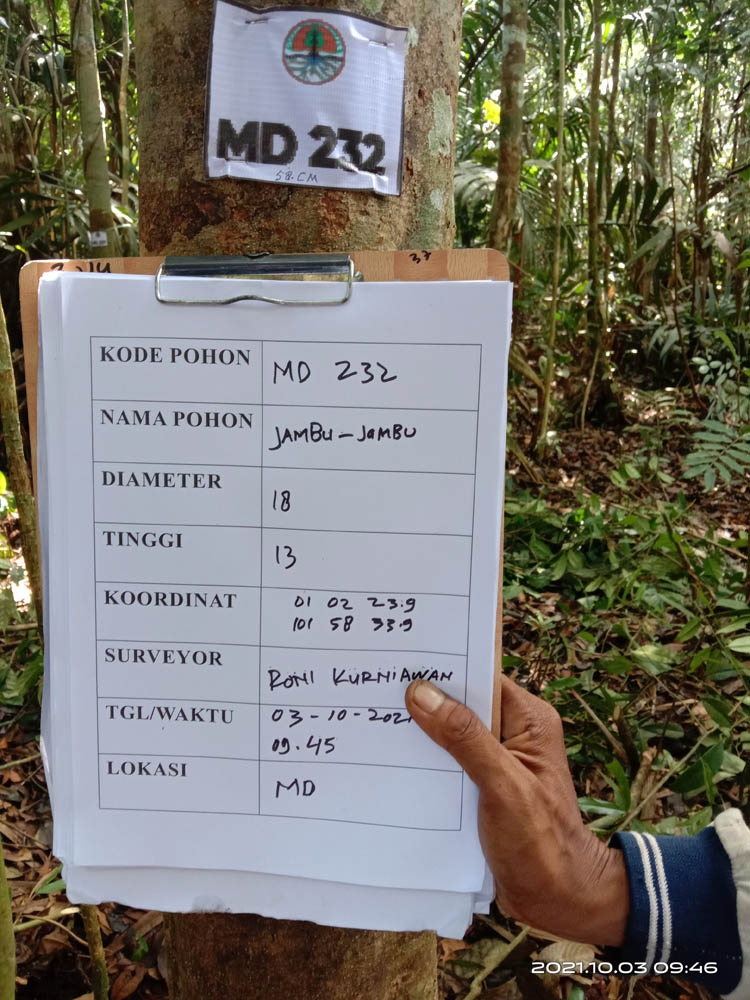 MD 232
58.CM
37
KODE POHON MD 232
NAMA POHON JAMBU-JAMBU
DIAMETER 18
TINGGI 13
KOORDINAT 01 02 23.9
101 58 33.9
SURVEYOR RONI KURNIAWAN
TGL/WAKTU 03-10-2021
09.45
LOKASI MD
2021.10.03 09:46